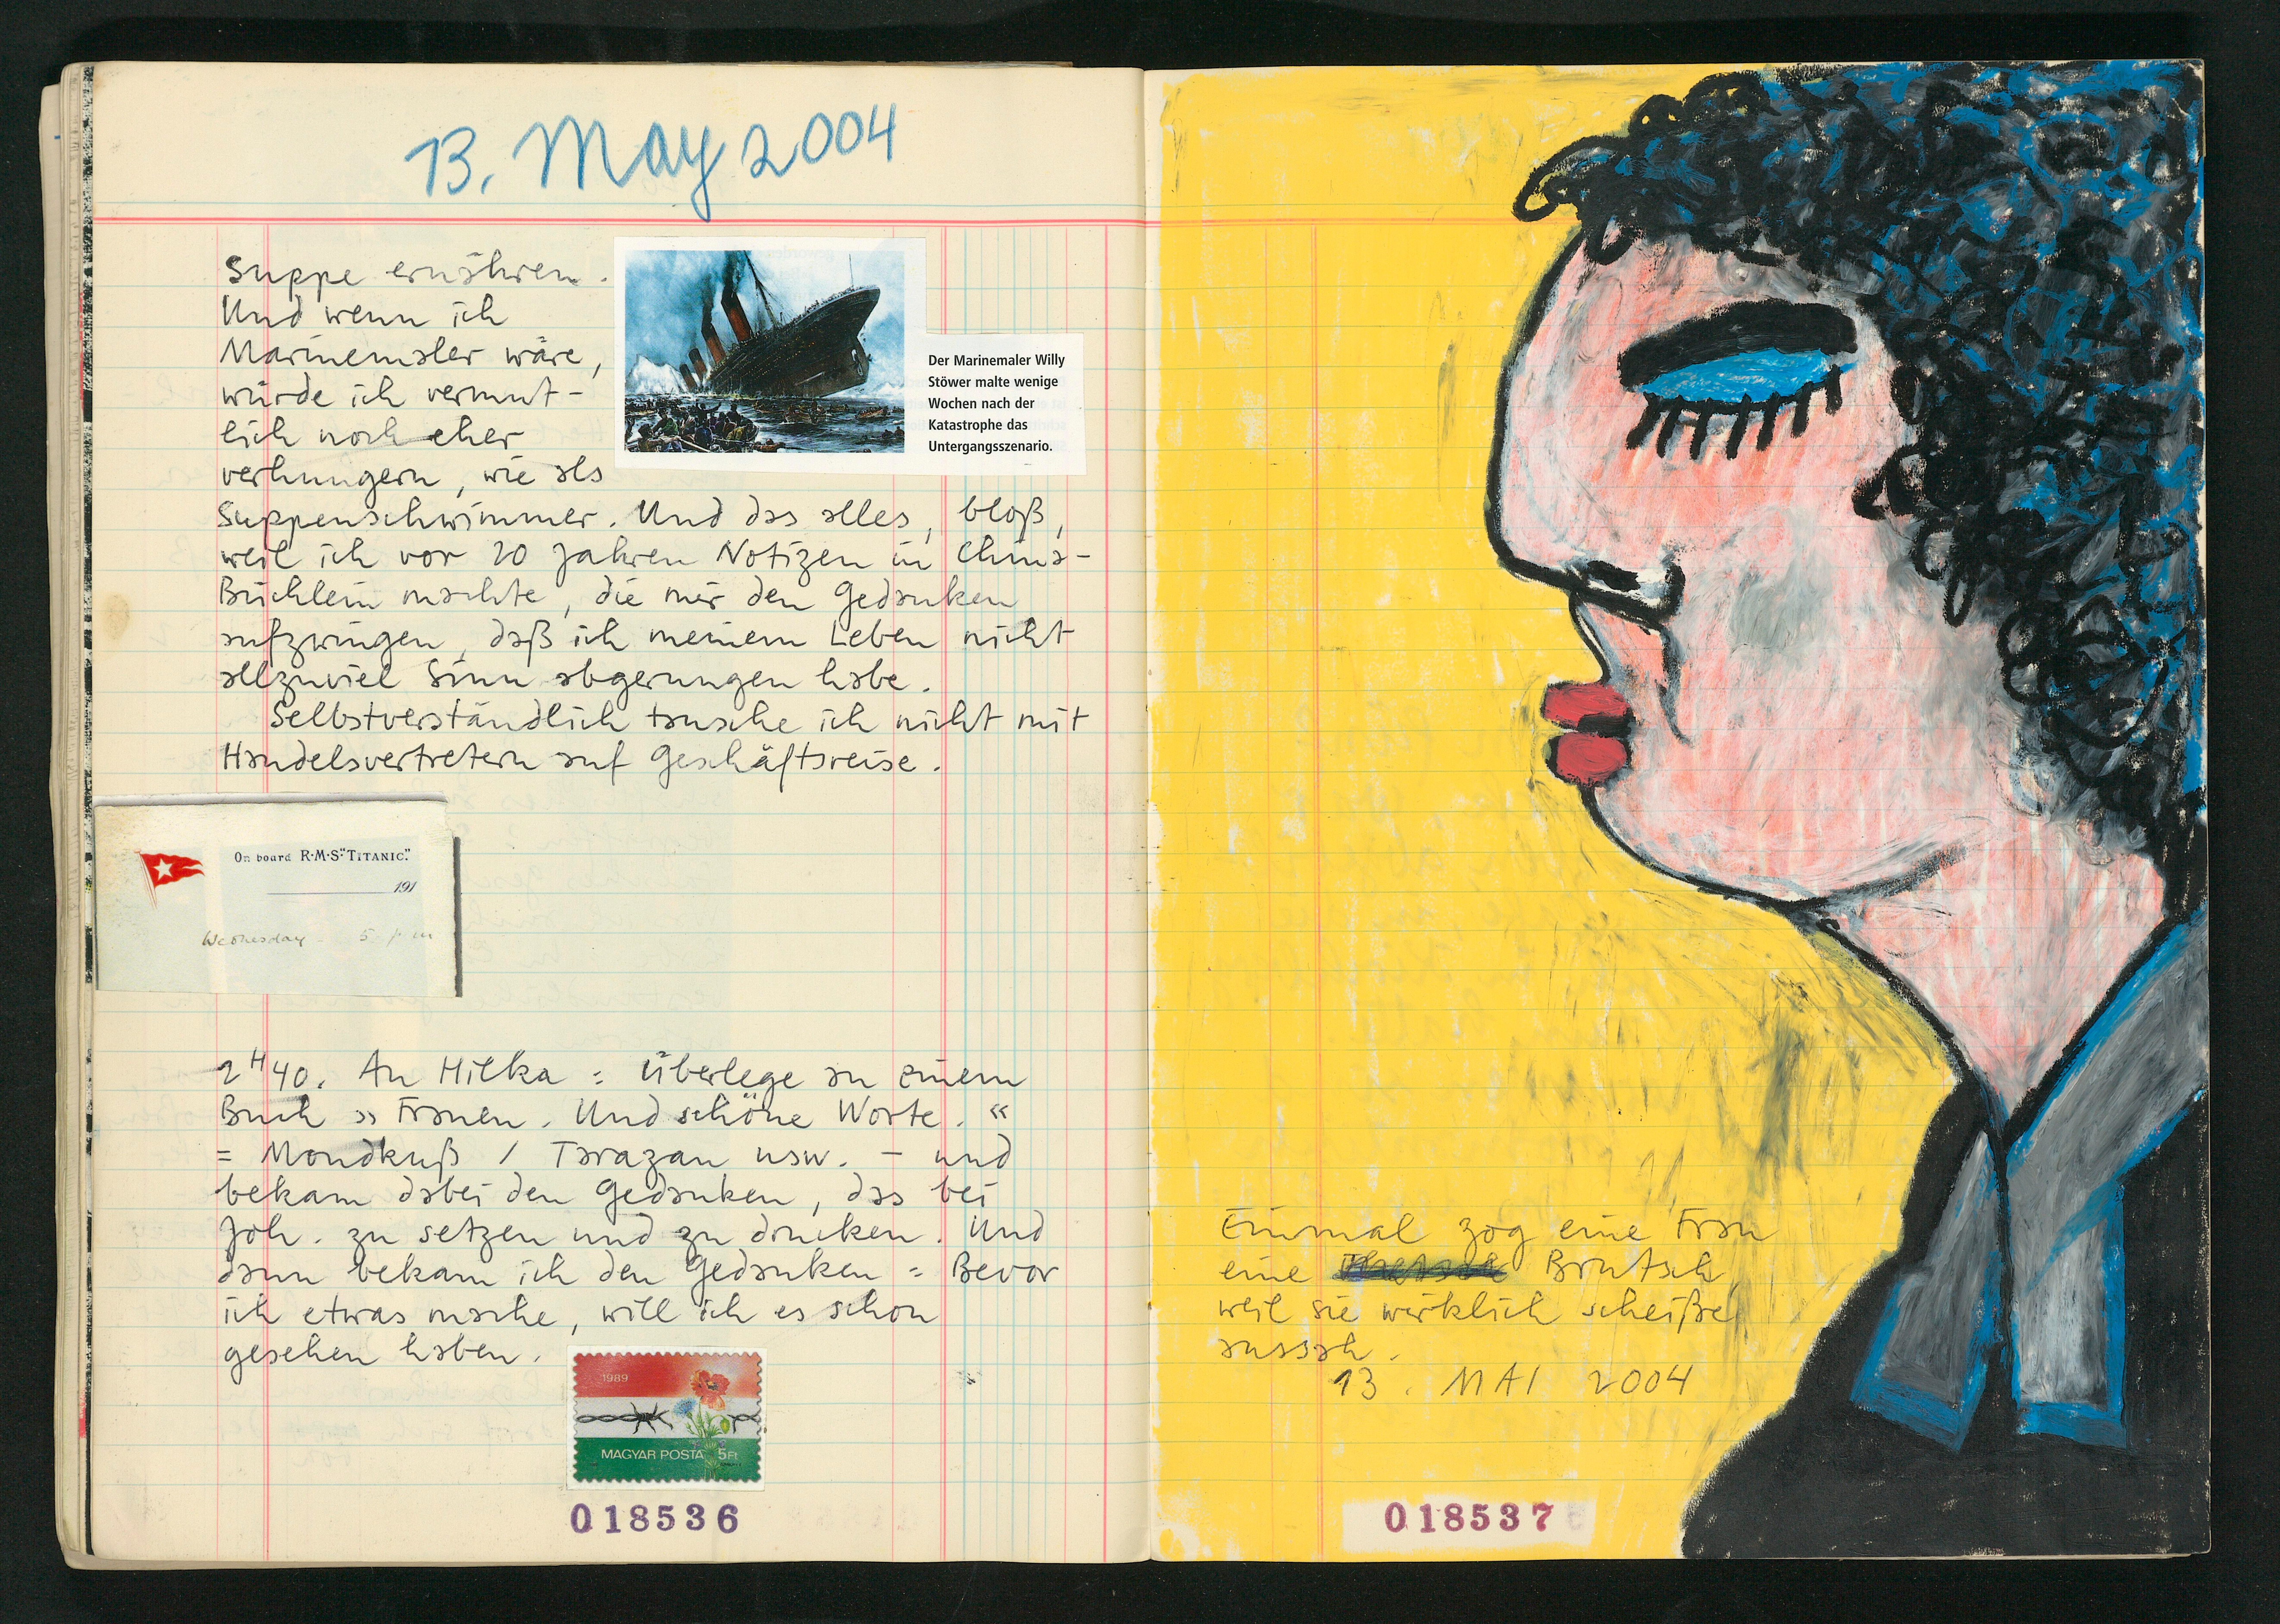 13. May 2004
Suppe ernähren.
Und wenn ich
Marinemaler wäre,
würde ich vermut-
lich noch eher
verhungern, wie als
Suppenschwimmer. Und das alles, bloß,
weil ich vor 20 Jahren Notizen in China-
Büchlein machte, die mir den Gedanken
aufzwingen, daß ich meinem Leben nicht
allzuviel Sinn abgerungen habe.
Selbstverständlich tausche ich nicht mit
Handelsvertretern auf Geschäftsreise.
Der Marinemaler Willy
Stöwer malte wenige
Wochen nach der
Katastrophe das
Untergangsszenario.
On board R·M·S·"TITANIC."
191
Wednesday - 5 p m
2H40. An Hilka = Überlege an einem
Buch »Frauen. Und schöne Worte.«
= Mondkuß / Tarazan usw. – und
bekam dabei den Gedanken, das bei
Joh. zu setzen und zu drucken. Und
dann bekam ich den Gedanken = Bevor
ich etwas mache, will ich es schon
gesehen haben.
1989
MAGYAR POSTA 5Ft
018536
Einmal zog eine Frau
eine Brutsch
weil sie wirklich scheiße
aussah.
13. MAI 2004
018537